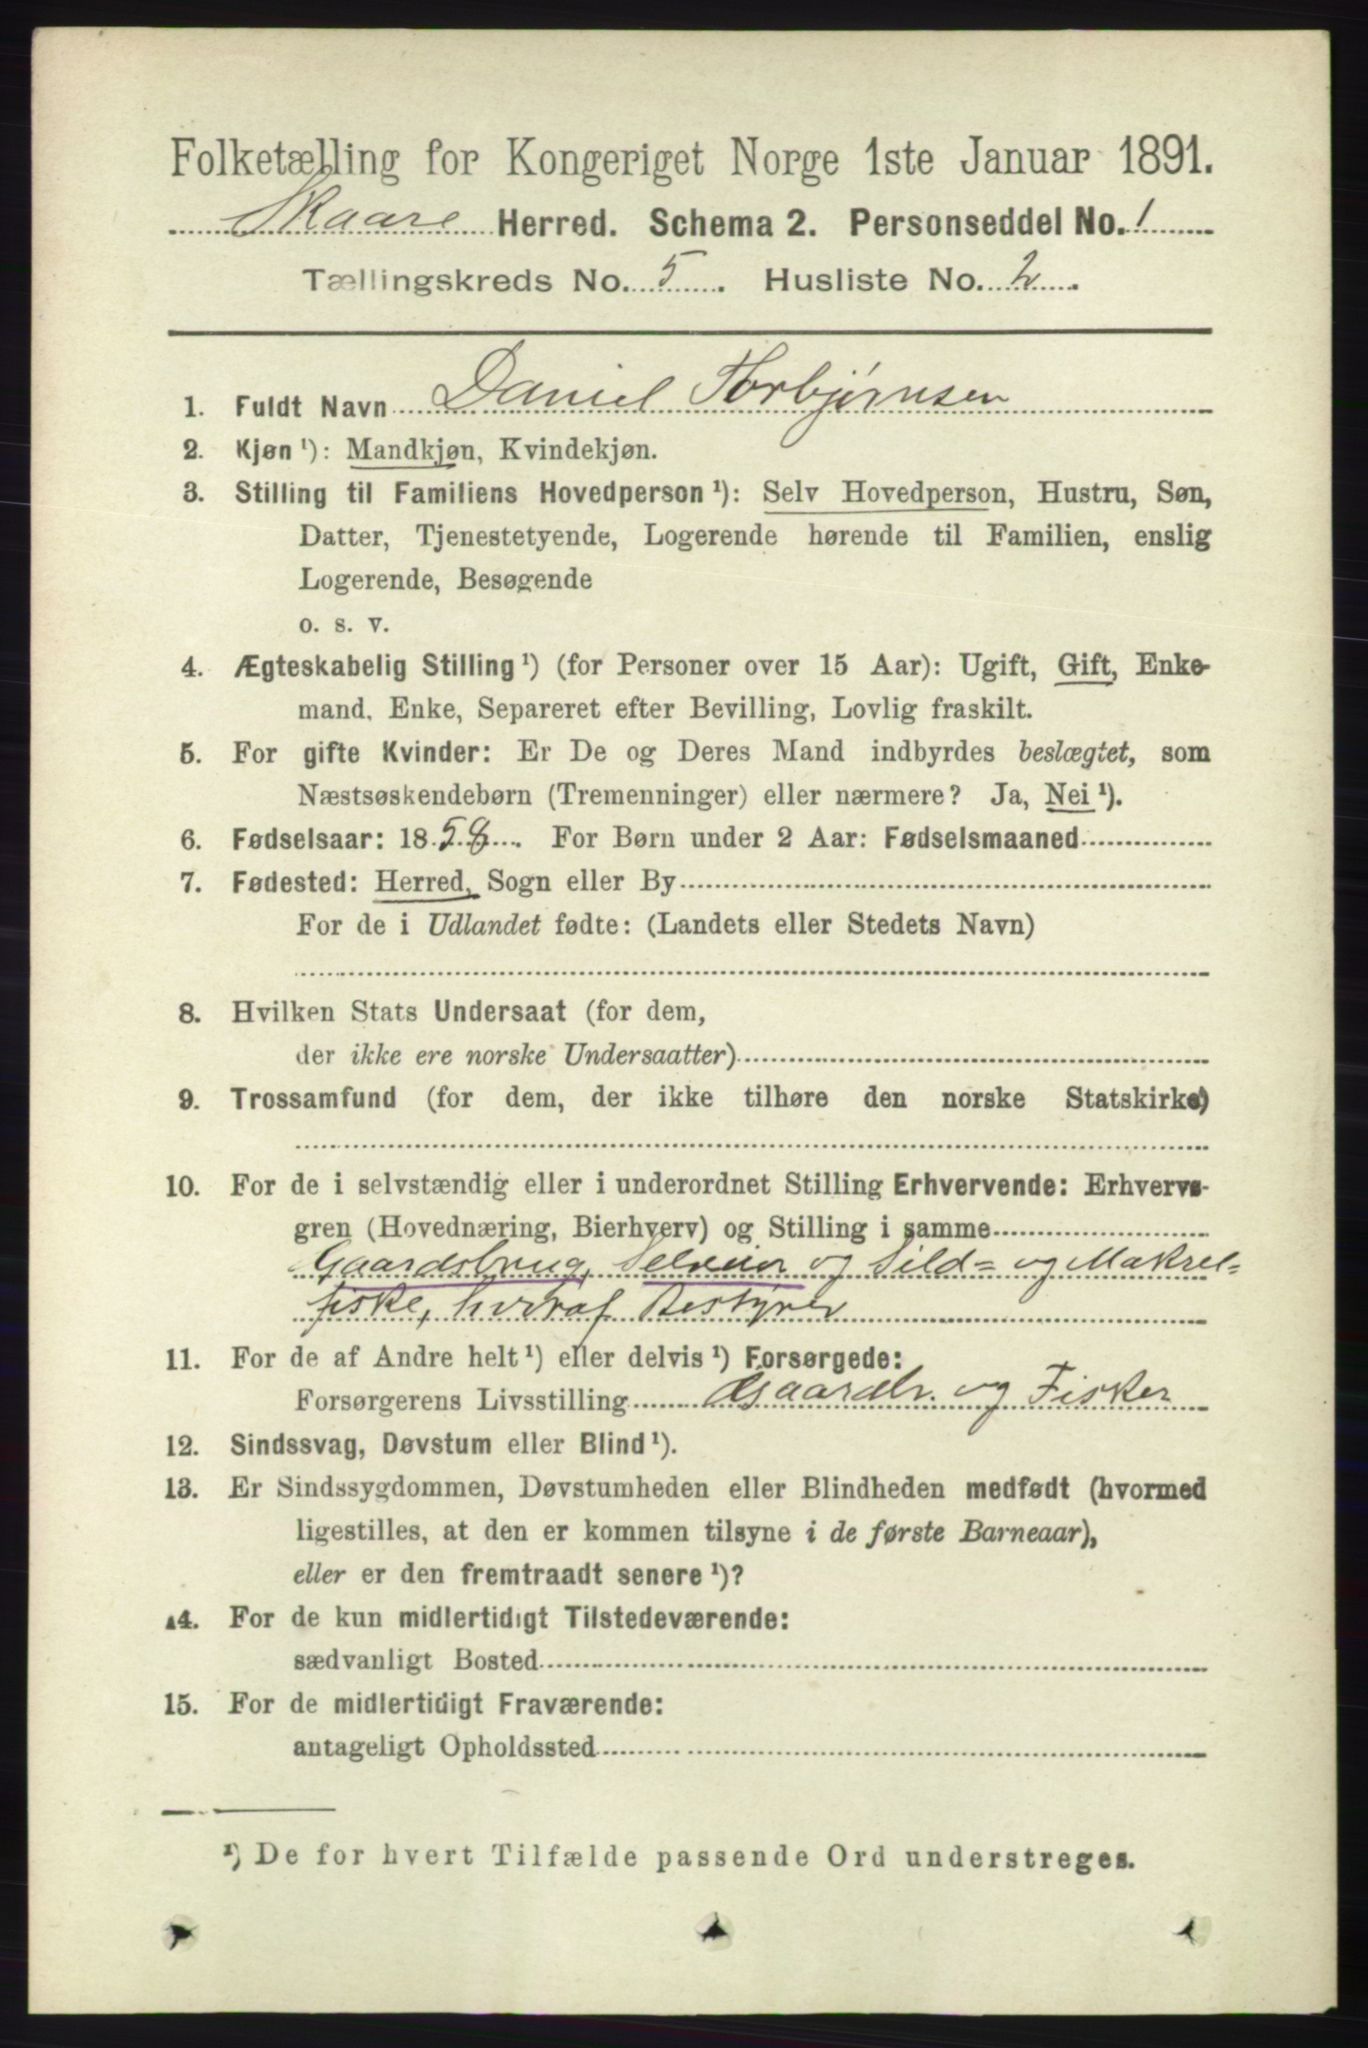 Folketælling for Kongeriget Norge 1ste Januar 1891.
Skaare Herred. Schema 2. Personseddel No. 1
Tællingskreds No. 5. Husliste No. 2.
1. Fuldt Navn Daniel Torbjørnsen
2. Kjøn ¹): Mandkjøn, Kvindekjøn.
3. Stilling til Familiens Hovedperson ¹): Selv Hovedperson, Hustru, Søn,
Datter, Tjenestetyende, Logerende hørende til Familien, enslig
Logerende, Besøgende
o. s. v.
4. Ægteskabelig Stilling ¹) (for Personer over 15 Aar): Ugift, Gift, Enke-
mand, Enke, Separeret efter Bevilling, Lovlig fraskilt.
5. For gifte Kvinder: Er De og Deres Mand indbyrdes beslægtet, som
Næstsøskendebørn (Tremenninger) eller nærmere? Ja, Nei ¹).
6. Fødselsaar: 1858. For Børn under 2 Aar: Fødselsmaaned
7. Fødested: Herred, Sogn eller By
For de i Udlandet fødte: (Landets eller Stedets Navn)
8. Hvilken Stats Undersaat (for dem,
der ikke ere norske Undersaatter)
9. Trossamfund (for dem, der ikke tilhøre den norske Statskirke)
10. For de i selvstændig eller i underordnet Stilling Erhvervende: Erhvervs-
gren (Hovednæring, Bierhverv) og Stilling i samme
Gaardsbrug, Selveier og Sild= og Makrel=
fiske, hvoraf Bestyrer
11. For de af Andre helt ¹) eller delvis ¹) Forsørgede:
Forsørgerens Livsstilling Gaardbr. og Fisker
12. Sindssvag, Døvstum eller Blind ¹).
13. Er Sindssygdommen, Døvstumheden eller Blindheden medfødt (hvormed
ligestilles, at den er kommen tilsyne i de første Barneaar),
eller er den fremtraadt senere ¹)?
14. For de kun midlertidigt Tilstedeværende:
sædvanligt Bosted
15. For de midlertidigt Fraværende:
antageligt Opholdssted
¹) De for hvert Tilfælde passende Ord understreges.